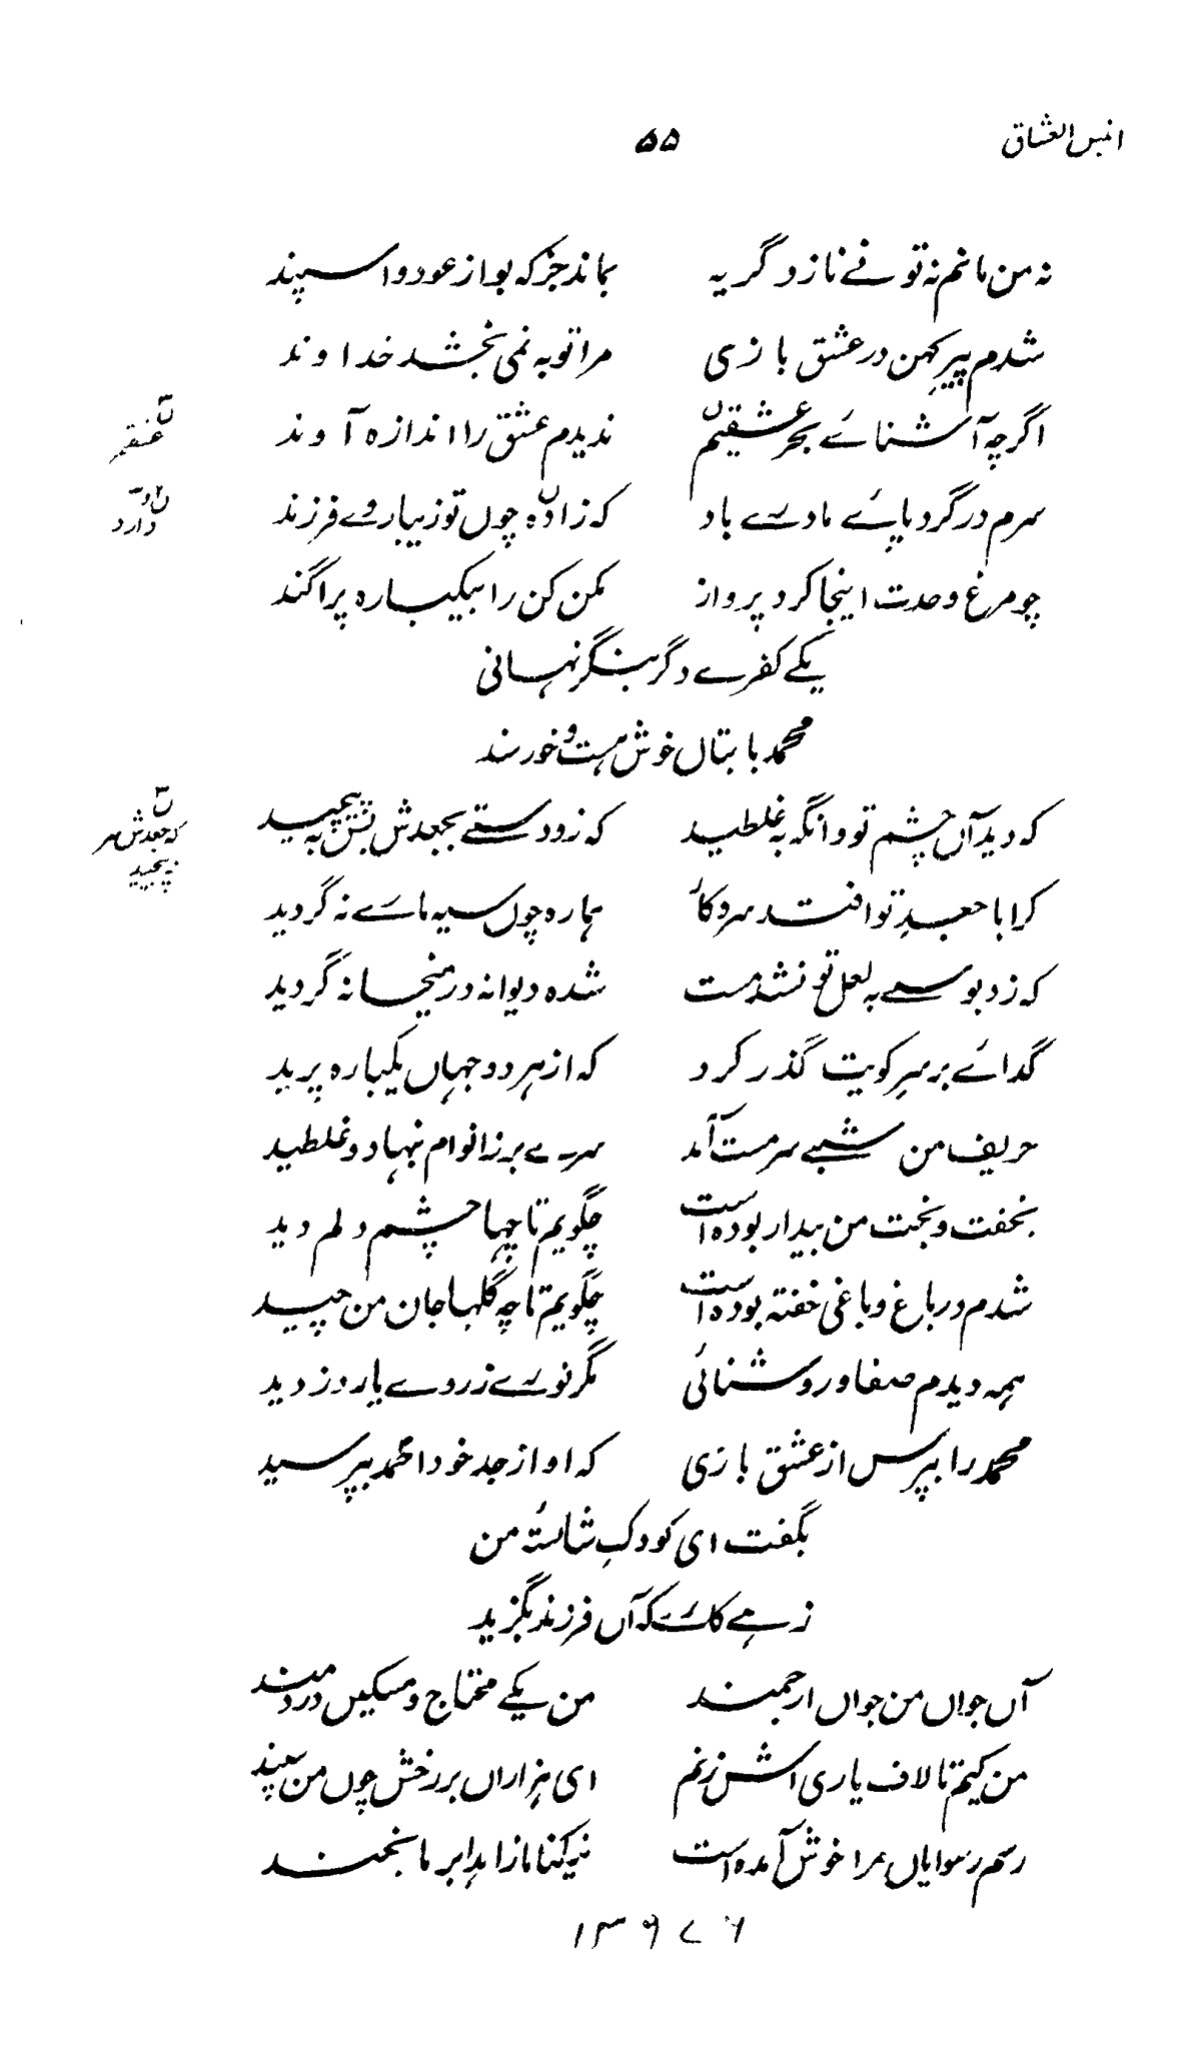 انیس العشاق ۵۵
نہ من مانم نہ تو نے ناز و گریہ بماند جز کہ بو از عود و اسپند
شدم پیر کہن در عشق بازی مرا توبہ نمی بخشد خداوند
اگرچہ آشنائے بحر عشقیم ندیدم عشق را اندازہ آوند
سرم در گرد پائے مادرے باد کہ زادہ چوں تو زیبا روے فرزند
دارد
چو مرغ وحدت اینجا کرد پرواز مکن کن را بیکبارہ پراگند
یکے کفرے دگر بنگر نہانی
محمد با بتاں خوش ہست و خورسند
کہ دید آں چشم تو وانگہ نہ غلطید کہ زد دستے بجعدش پس نہ پیچید
کہ جعدش سر
نہ پیچید
کرا با جعد تو افتد سروکار ہمارہ چوں سیہ مارے نہ گردید
کہ زد بوسے بہ لعل تو نشد مست شدہ دیوانہ در میخانہ گردید
گدائے بر سر کویت گذر کرد کہ از ہر دو جہاں یکبارہ پرید
حریف من شبے سرمست آمد سرے بر زانوام نہاد و غلطید
بخفت و بخت من بیدار بودہ است چگویم تا چہا چشم و لم دید
شدم در باغ و باغی خفتہ بودہ است چگویم تا چہ گلہا جان من چید
ہمہ دیدم صفا و روشنائی مگر نورے ز روے یار دزدید
محمد را بپرس از عشق بازی کہ او از جد خود احمد بپرسید
بگفت ای کودک شائستۂ من
زہے کارے کہ آں فرزند بگزید
آں جواں من جواں ارجمند من یکے محتاج و مسکیں دردمند
من کیم تا لاف یاری اش زنم ای ہزاراں بر رخش چوں من سپند
رسم رسوایاں مرا خوش آمدہ است نیکنا ما زاہدا بر ما بخند
۱۳۹۷۶